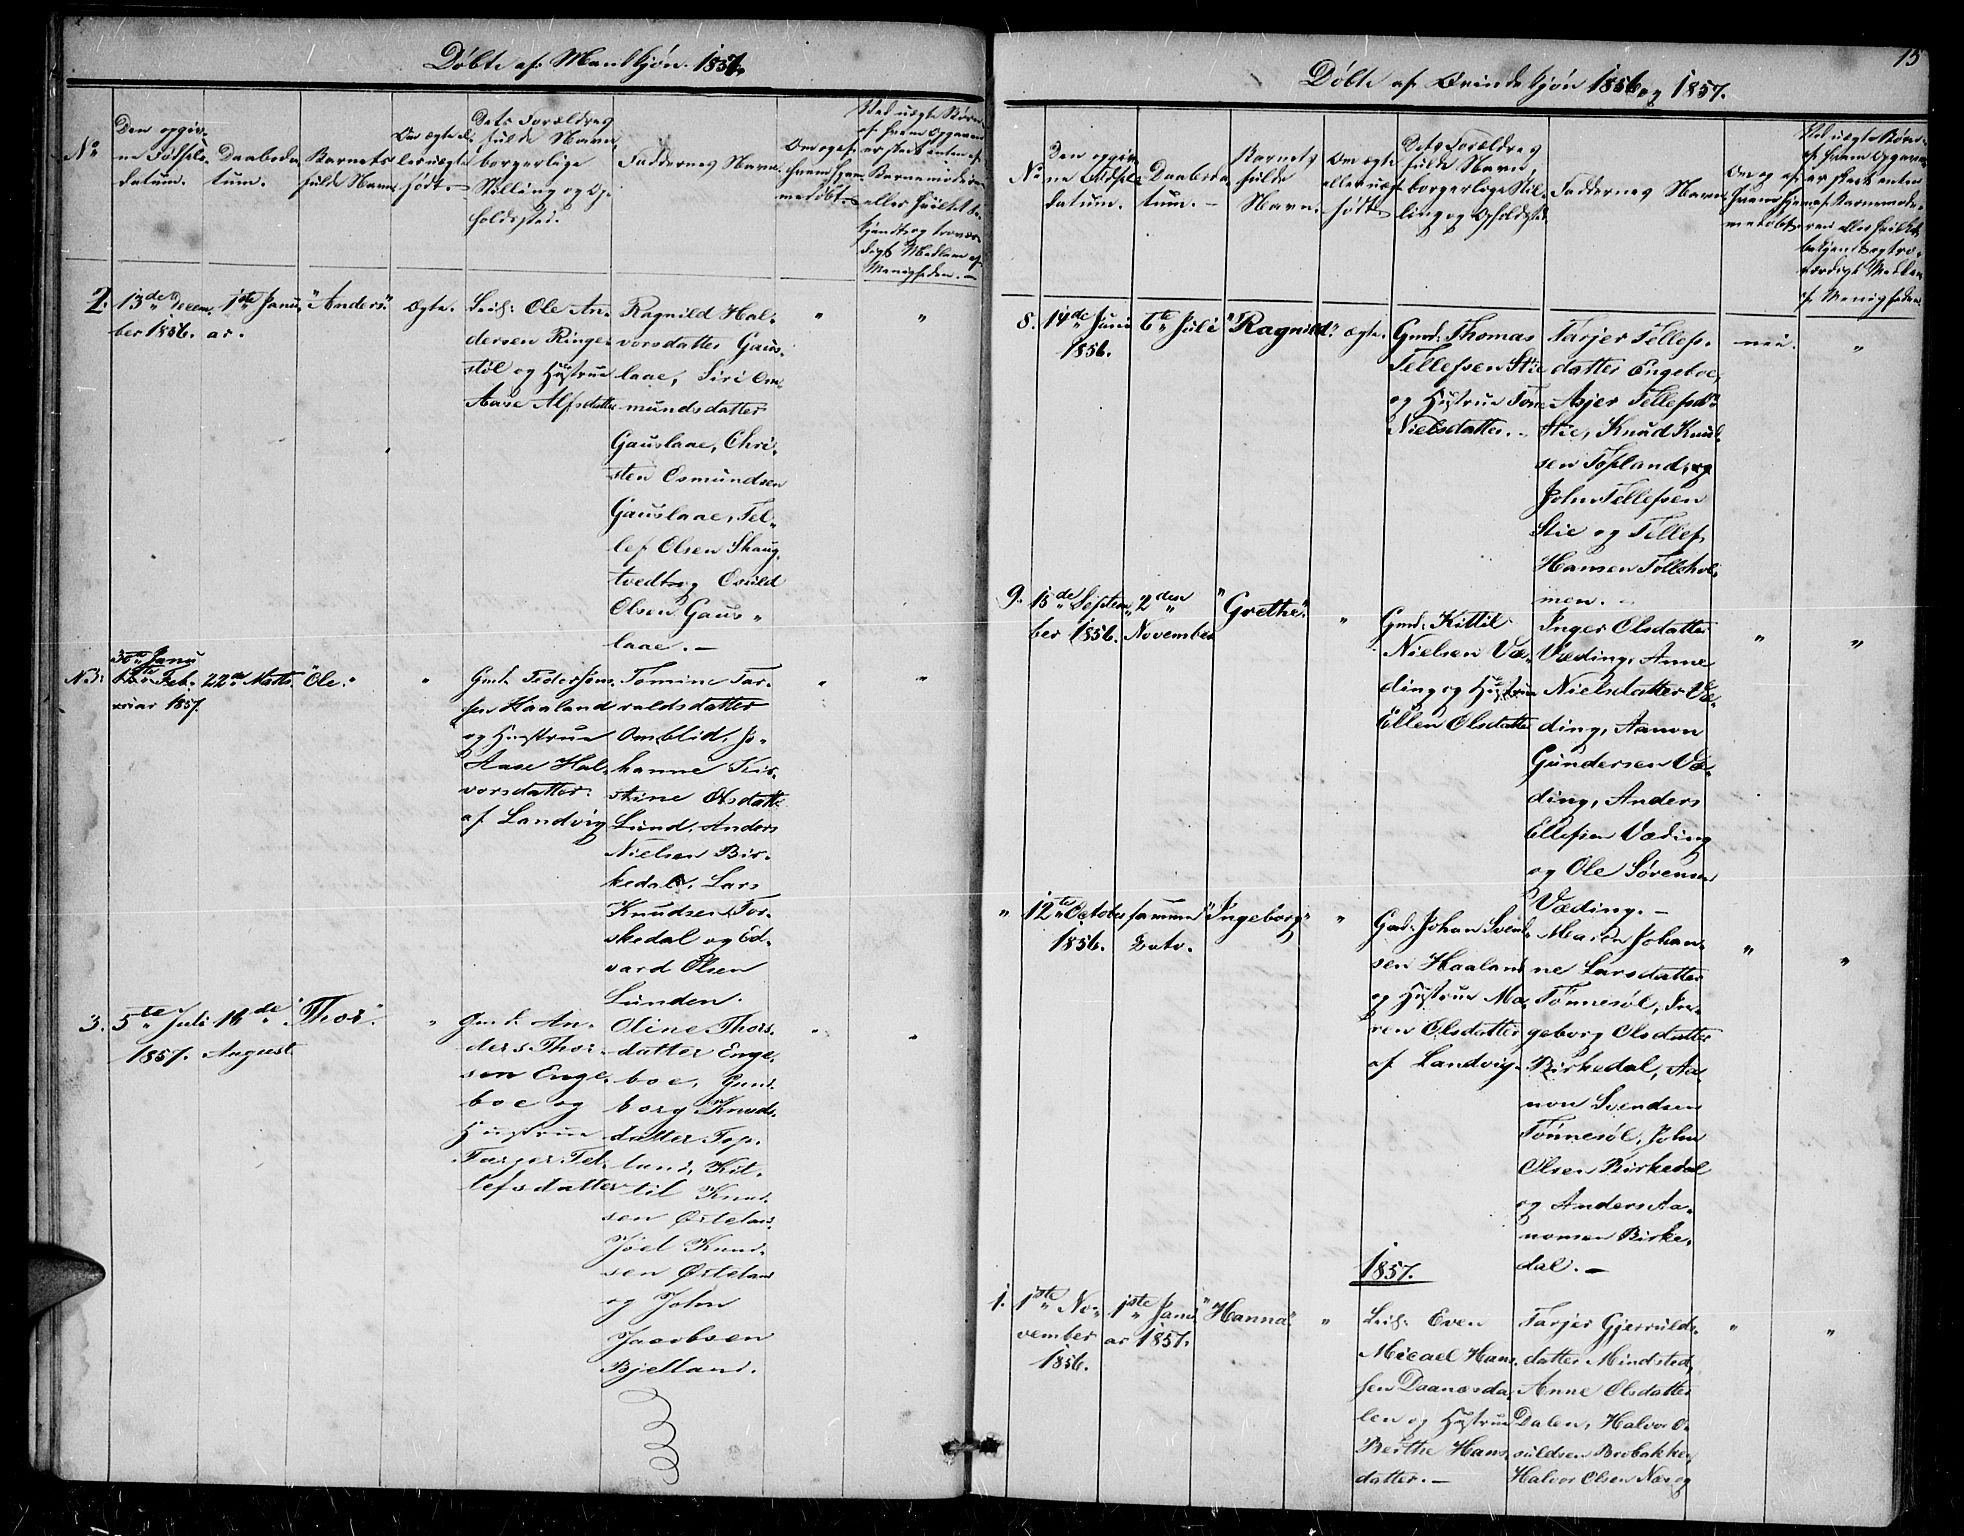 Døbte af Mandkjøn. 1857.
No
Den opgiv-
ne Fødsels-
datum.
Daabsda-
tum.
Barnets
fulde Navn
Om ægte el-
ler uægte
født.
Dets Forældres
fulde Navn,
borgerlige
Stilling og Op-
holdssted.
Faddernes Navn.
Om og af
hvem hjem-
medøbt.
2.
13de Decem-
ber 1856.
1ste Janu-
ar.
"Anders"
Ægte.
Leil: Ole An-
dersen Ringe-
støl og Hustrue
Aase Alfsdatter
Ragnild Hal-
vorsdatter Gaus-
laae, Siri Os-
mundsdatter
Gauslaae, Chri-
sten Osmundsen
Gauslaae, Tel-
lef Olsen Skaug-
tvedt og Osuld
Olsen Gaus-
laae.
N.3:
30te Janu
Feb-
ruar 1857.
22de Marts
"Ole."
"
Gmd. Peder Jens-
sen Haaland
og Hustrue
Aase Hal-
vorsdatter
af Landvig
Tomine Tar-
raldsdatter
Omblid, Jo-
hanne Kir-
stine Olsdatt:
Lund, Anders
Nielsen Bir-
kedal, Lars
Knudsen Tor-
skedal og Ed-
vard Olsen
Lunden.
3.
5te Juli
1857.
16de
August
Thor.
"
Gmd. An-
ders Thor-
sen Enge-
boe og
Hustrue
Tarjer Tel-
lefsdatter
Oline Thors-
datter Enge-
boe, Gun-
borg Knuds-
datter Top-
land, Kit-
til Knud-
sen Østeland
Joel Knud-
sen Østeland
og John
Jacobsen
Bjelland.
15
Døbte af Qvindekjøn 1856 og 1857.
No
Den opgiv-
ne Fødsels-
datum.
Daabsda-
tum.
Barnets
fulde
Navn.
Om ægte
eller uægte
født
Dets Forældres
fulde Navn,
borgerlige Stil-
ling og Opholdssted.
Faddernes Navn
Om og af
hvem hjem-
medøbt
8.
14de Juni
1856.
6te Juli
"Ragnild"
ægte.
Gmd: Thomas
Tellefsen Stie
og Hustrue Tone
Nielsdatter.
Tarjer Tellefs-
datter Engeboe,
Asjer Tellefsdr
Stie, Knud Knud-
sen Topland, og
John Tellefsen
Stie og Tellef
Hansen Tolleshol-
men.
nei.
"
9.
15de Septem-
ber 1856.
2den
November
"Grethe"
"
Gmd: Kittil
Nielsen Væ-
ding og Hustrue
Ellen Olsdatter
Inger Olsdatter
Væding, Anne
Nielsdatter Væ-
ding, Aanon
Gundersen Væ-
ding, Anders
Ellefsen Væding
og Ole Sørensen
Væding.
"
12te October
1856.
samme
Dato.
"Ingeborg"
"
Gmd: Johan Svend-
sen Haaland
og Hustrue Ma-
ren Olsdatter
af Landvig.
Maren Johan-
ne Larsdatter
Tønnesøl, In-
geborg Olsdatter
Birkedal, Aa-
non Svendsen
Tønnesøl, John
Olsen Birkedal
og Anders Aa-
nonsen Birke-
dal.
1857.
1.
1ste No-
vember
1856.
1ste Janu-
ar 1857.
"Hanna"
"
Leil: Even
Micael Hans-
sen Daanesda-
len og Hustrue
Berthe Hans-
datter.
Tarjer Gjerulds-
datter Mindsted,
Anne Olsdatter
Dalen, Halvor O-
suldsen Brobakken
Halvor Olsen Næs og